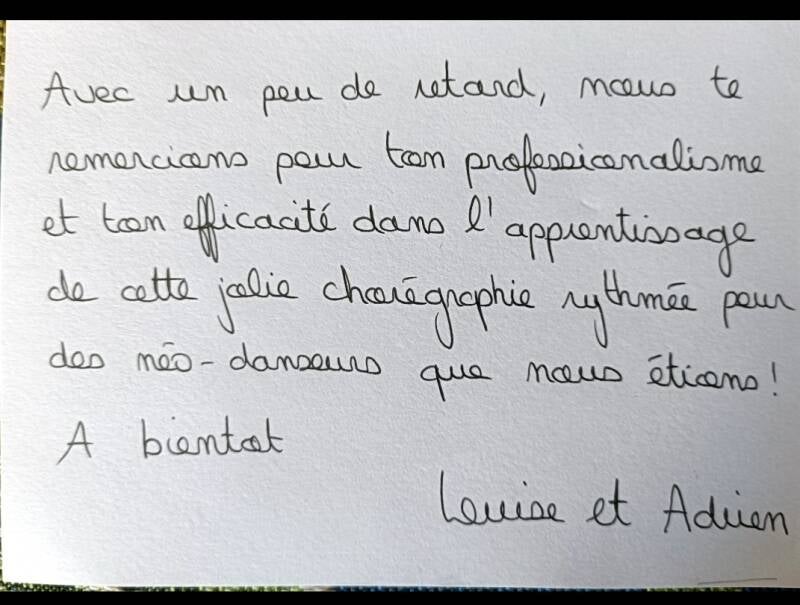 Avec un peu de retard, nous te
remercions pour ton professionalisme
et ton efficacité dans l'apprentissage
de cette jolie chorégraphie rythmée pour
des néo-danseurs que nous étions !
A bientot
Louise et Adrien